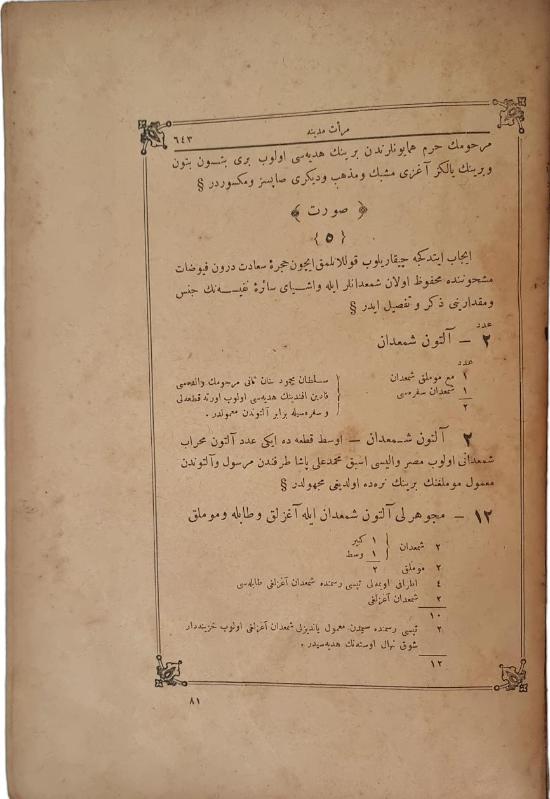 مرأت مدینه
٦٤٣
مرحومك حرم همایونلرندن برینك هدیه‌سی اولوب بری بتـــون بتون
وبرینك یالكز آغزی مشبك ومذهب ودیكری صاپسز ومكسوردر §
﴿ صورت ﴾
{ ٥ }
ایجاب ایتدكجه چیقاریلوب قوللانلمق ایچون حجرهٔ سعادت درون فیوضات
مشحوننده محفوظ اولان شمعدانلر ایله واشیای سائرهٔ نفیســه‌نك جنس
ومقدارینی ذكر و تفصیل ایدر §
عدد
٢ – آلتون شمعدان
عدد
١ مع موملق شمعدان
١ شمعدان سفره‌سی
٢
سلطان محمود خان ثانی مرحومك
قادین افندینك هدیه‌سی اولوب اورته قطعه‌لی
و سفره‌سیله برابر آلتوندن معمولدر .
٢ آلتون شـمعدان – اوسط قطعه ده ایكی عدد آلتون محراب
شمعدانی اولوب مصر والیسی اسبق محمدعلی پاشا طرفندن مرسول وآلتوندن
معمول موملغنك برینك نره‌ده اولدیغی مجهولدر §
١٢ – مجوهرلی آلتون شمعدان ایله آغزلق وطابله وموملق
٢ شمعدان { ١ كبیر
١ وسط
٢ موملق ٢
٤ اطرافی اویمه‌لی تپسی رسمنده شمعدان آغزلقی طابله‌سی
٢ شمعدان آغزلقی
١٠
٢ تپسی رسمنده سیمدن معمول یالدیزلی شمعدان آغزلقی اولوب خزینه‌دار
شوق نهال اوسته‌نك هدیه‌سیدر .
١٢
٨١